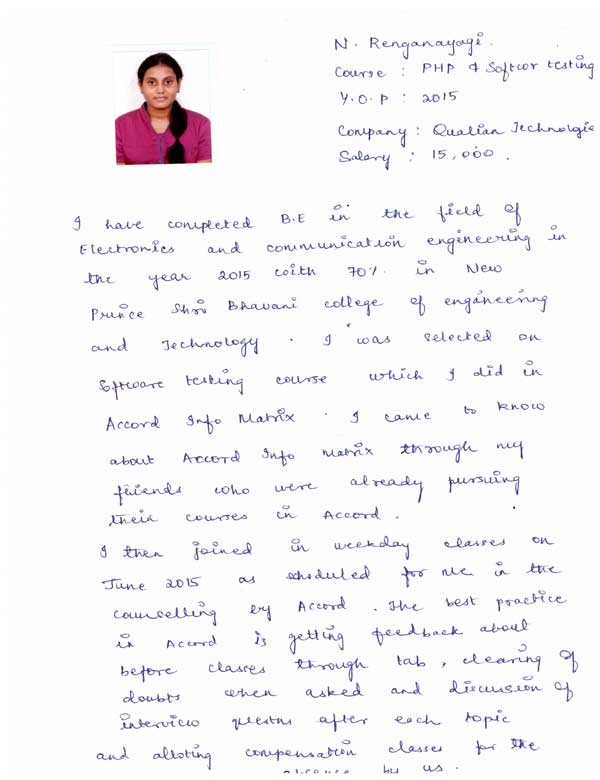 N. Renganayagi.
Course : PHP & Softwr testing
Y.O.P : 2015
Company : Qualian Technologie
Salary : 15,000.
I have completed B.E in the field of
Electronics and communication engineering in
the year 2015 with 70% in New
Prince Shri Bhavani college of engineering
and Technology. I was selected on
Software testing course which I did in
Accord Info Matrix. I came to know
about Accord Info matrix through my
friends who were already pursuing
their courses in Accord.
I then joined in weekday classes on
June 2015 as scheduled for me in the
counselling by Accord. The best practice
in Accord is getting feedback about
before classes through tab, clearing of
doubts when asked and discussion of
interview questns after each topic
and alloting compensation classes for the
absence by us.